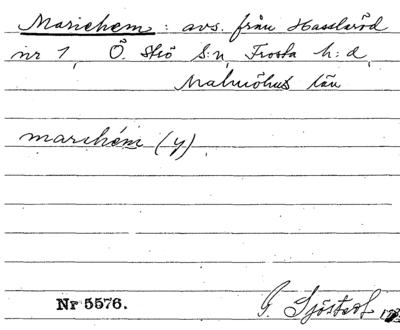 Mariehem : avs. från Hasslaröd
nr 1, Ö. Strö S:n, Frosta h:d,
Malmöhus län
marihém (y).
Nr 5576.
G. Sjöstedt